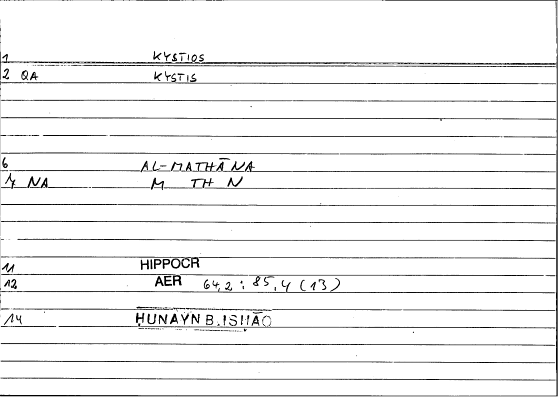 1 KYSTIOS
2 QA KYSTIS
6 AL-MATHĀNA
7 NA M TH N
11 HIPPOCR
12 AER 64,2 : 85,4 (13)
14 ḤUNAYN B. ISḤĀQ